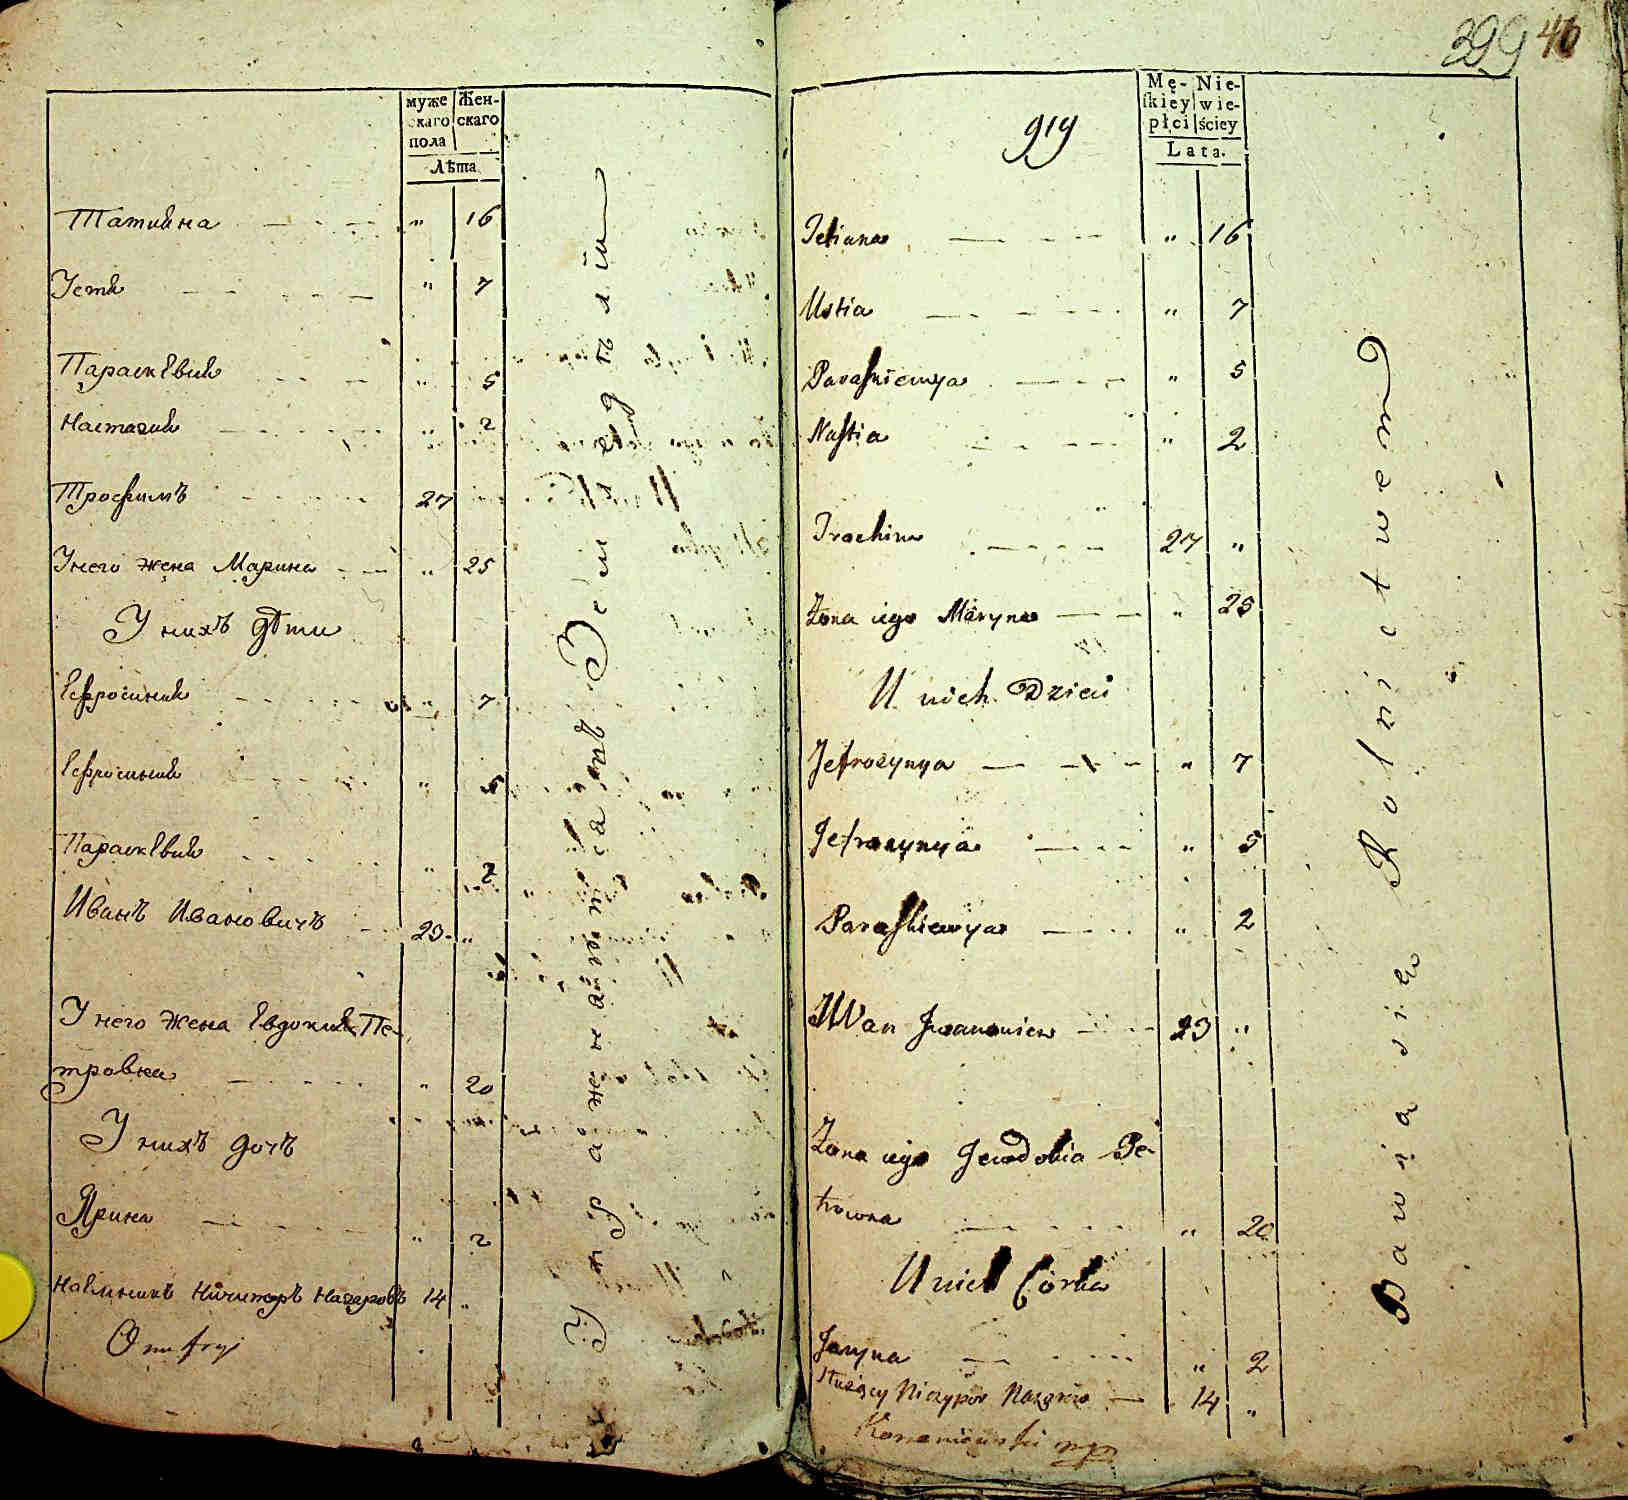 муже
скаго
пола
Жен-
скаго
Лѣта
Татияна — " 16
Устя — " 7
Параскѣвия — " 5
Настасия — " 2
Трофимъ — 27
Унего жена Марина — " 25
У нихъ дѣти
Ефросиния — " 7
Ефросиния — " 5
Параскѣвия — " 2
Иванъ Ивановичъ — 23 "
У него жена Евдокия Пе-
тровна — " 20
У нихъ дочъ
Ярина — " 2
Наемникъ Ничипоръ Назаровъ 14 "
Onufry
Упражняются въ Земледѣлїи
399 40
919
Mę-
skiey
płci
Nie-
wie-
ściey
Lata.
Tetiana — " 16
Ustia — " 7
Paraskiewya — " 5
Nastia — " 2
Trochim — 27 "
Żona iego Maryna — " 25
U nich Dzieci
Jefrozynya — " 7
Jefrozynya — " 5
Paraskiewya — " 2
Iwan Iwanowicz — 23 "
Żona iego Jewdokia Pe-
trowna — " 20
U nich Córka
Jaryna — " 2
Służący Niczypor Nazarow — 14 "
Bawią się Rolnictwem